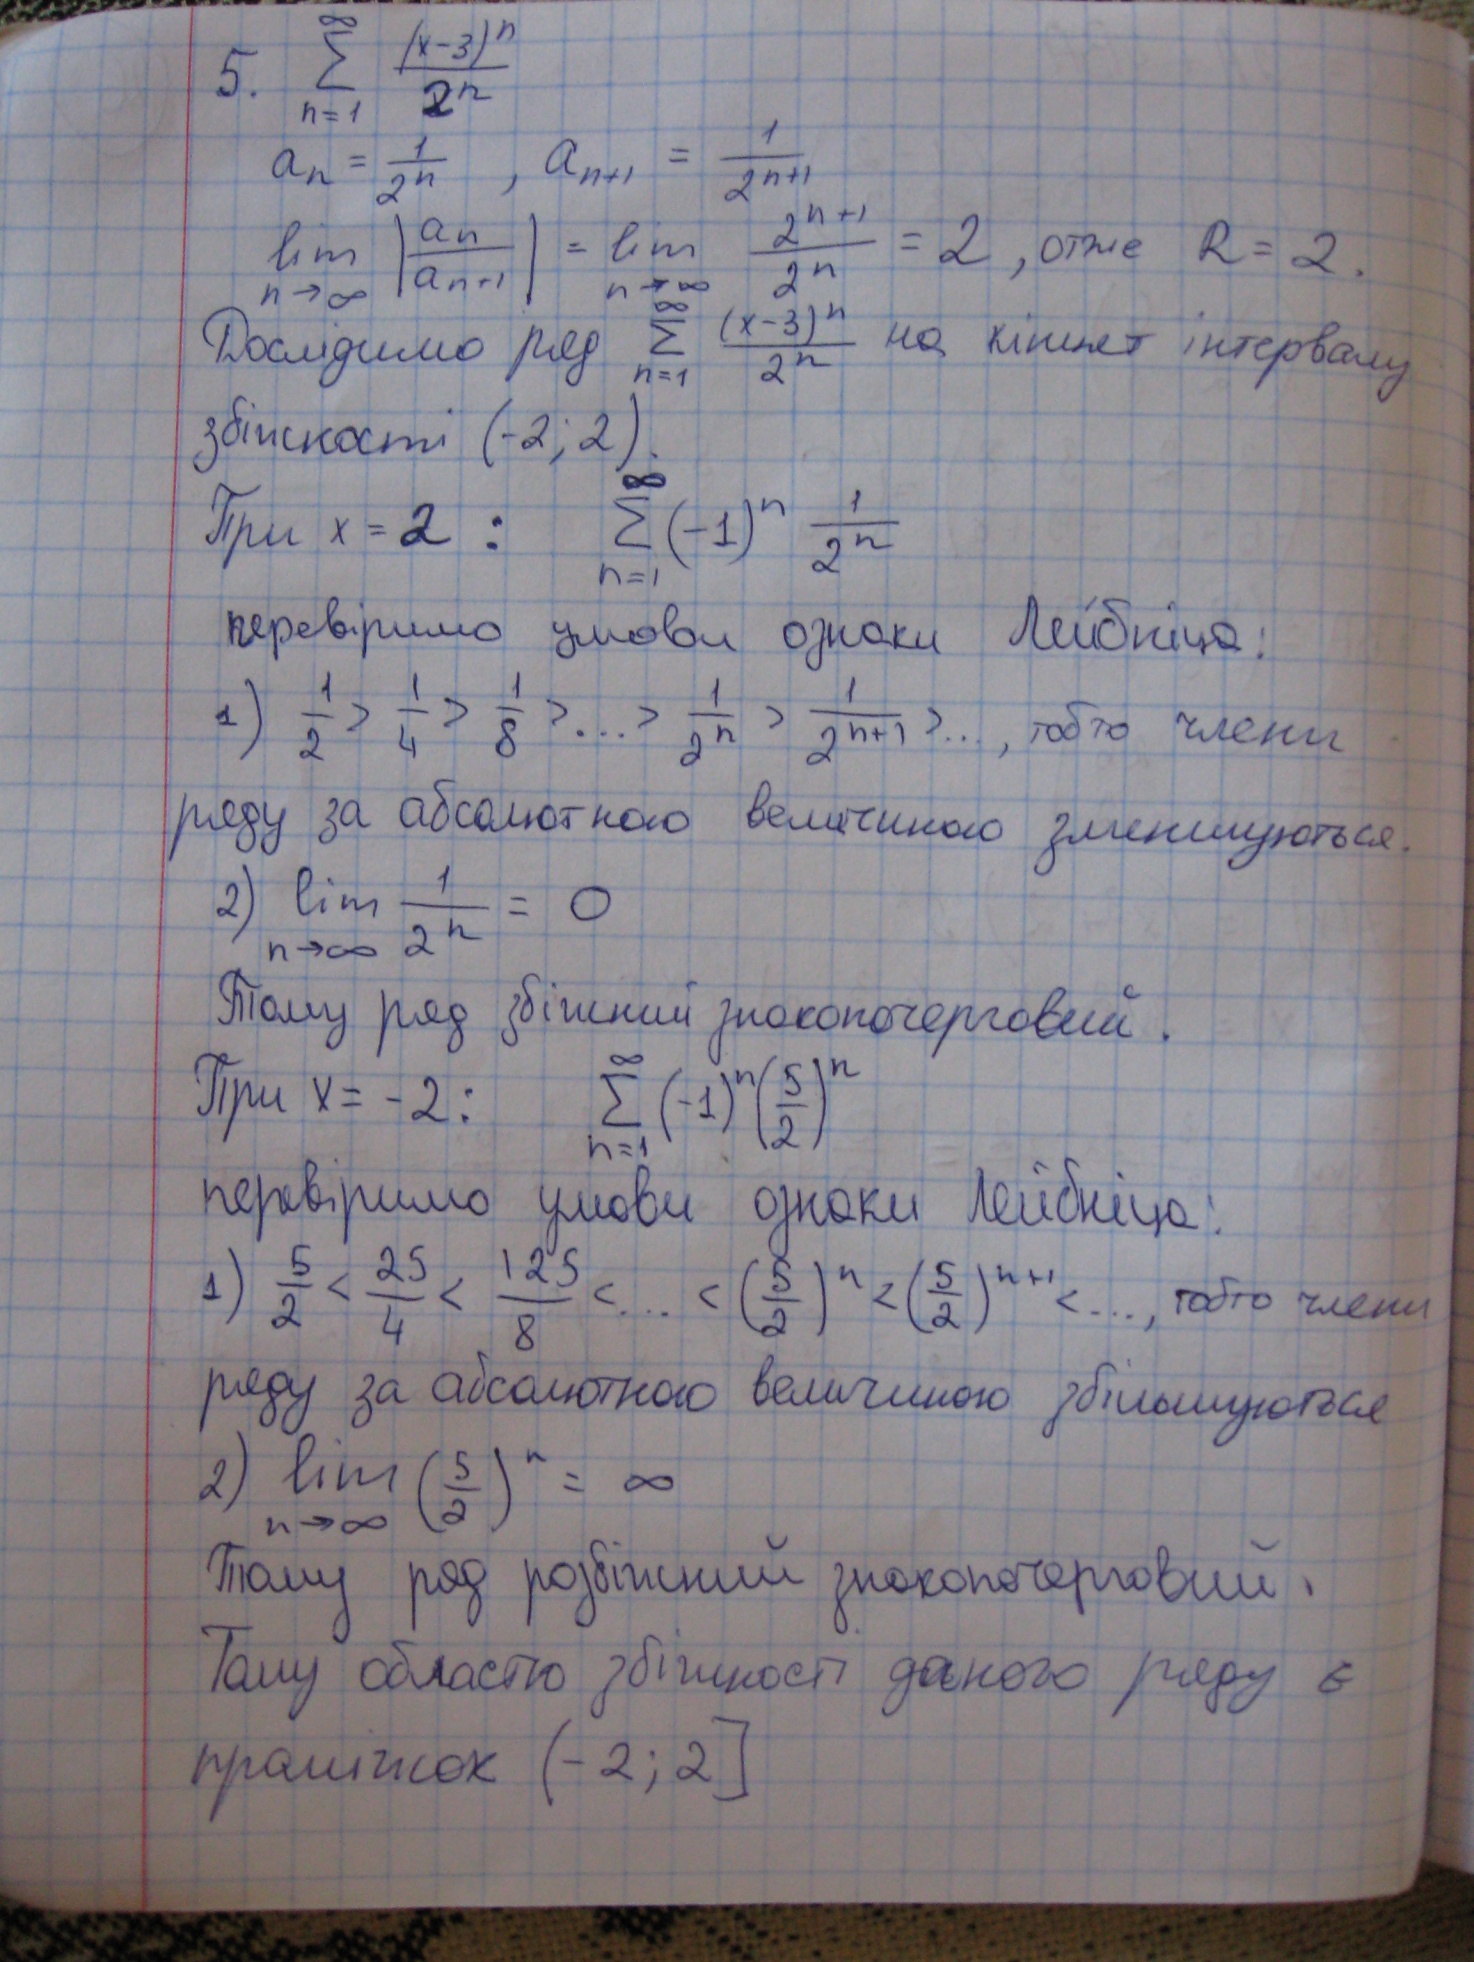 5. $\sum_{n=1}^{\infty} \frac{(x-3)^n}{2^n}$
$a_n = \frac{1}{2^n}$, $a_{n+1} = \frac{1}{2^{n+1}}$
$\lim_{n \to \infty} \left| \frac{a_n}{a_{n+1}} \right| = \lim_{n \to \infty} \frac{2^{n+1}}{2^n} = 2$, отже R = 2.
Дослідимо ряд $\sum_{n=1}^{\infty} \frac{(x-3)^n}{2^n}$ на кінцях інтервалу
збіжності (-2; 2).
При x = 2 : $\sum_{n=1}^{\infty} (-1)^n \frac{1}{2^n}$
перевіримо умови ознаки Лейбніца:
1) $\frac{1}{2} > \frac{1}{4} > \frac{1}{8} > \ldots > \frac{1}{2^n} > \frac{1}{2^{n+1}} > \ldots$, тобто члени
ряду за абсолютною величиною зменшуються.
2) $\lim_{n \to \infty} \frac{1}{2^n} = 0$
Тому ряд збіжний знакопочерговий.
При x = -2 : $\sum_{n=1}^{\infty} (-1)^n \left(\frac{5}{2}\right)^n$
перевіримо умови ознаки Лейбніца:
1) $\frac{5}{2} < \frac{25}{4} < \frac{125}{8} < \ldots < \left(\frac{5}{2}\right)^n < \left(\frac{5}{2}\right)^{n+1} < \ldots$, тобто члени
ряду за абсолютною величиною збільшуються
2) $\lim_{n \to \infty} \left(\frac{5}{2}\right)^n = \infty$
Тому ряд розбіжний знакопочерговий.
Тому областю збіжності даного ряду є
проміжок (-2; 2]